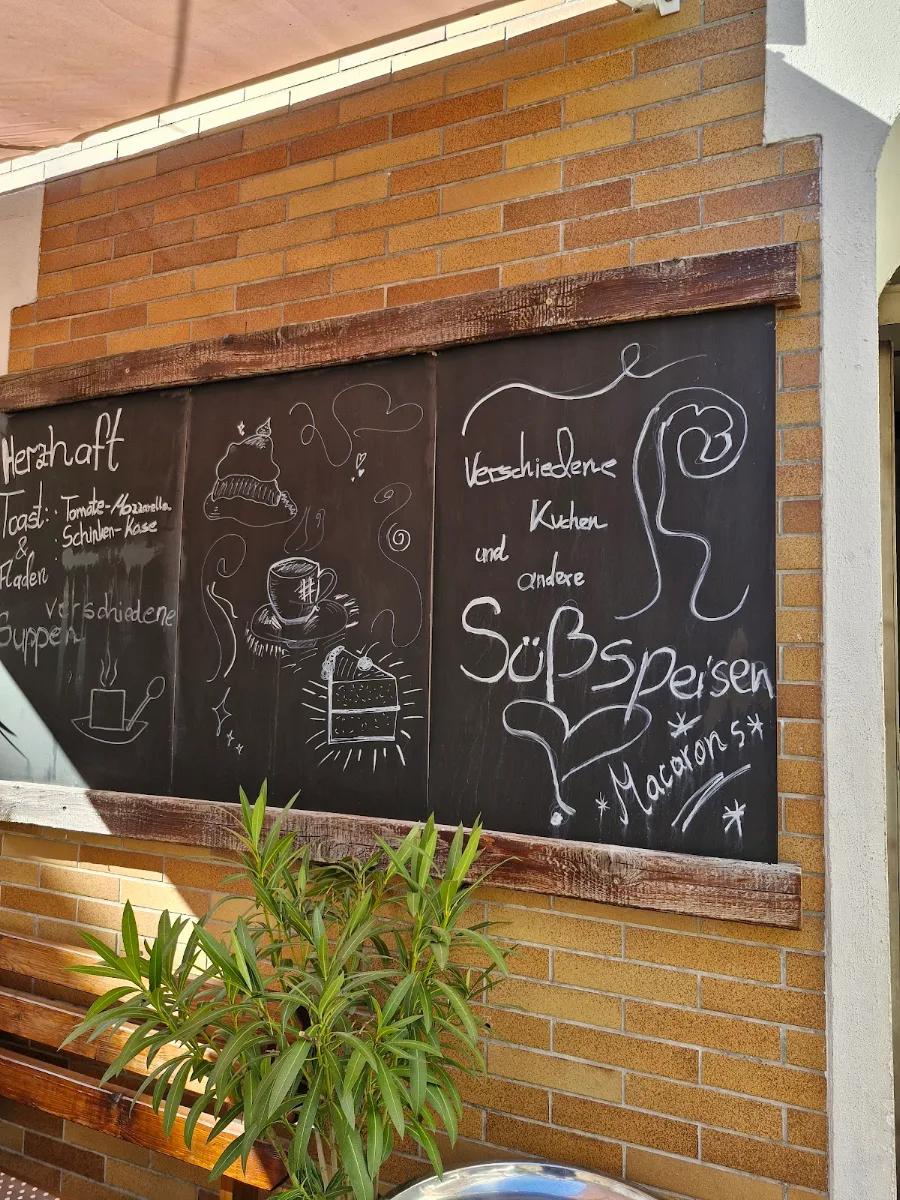 Herzhaft
Toast: Tomate-Mozzarella
: Schinken-Käse
&
Fladen
verschiedene
Suppen
#
Verschiedene
Kuchen
und
andere
Süßspeisen
Macarons